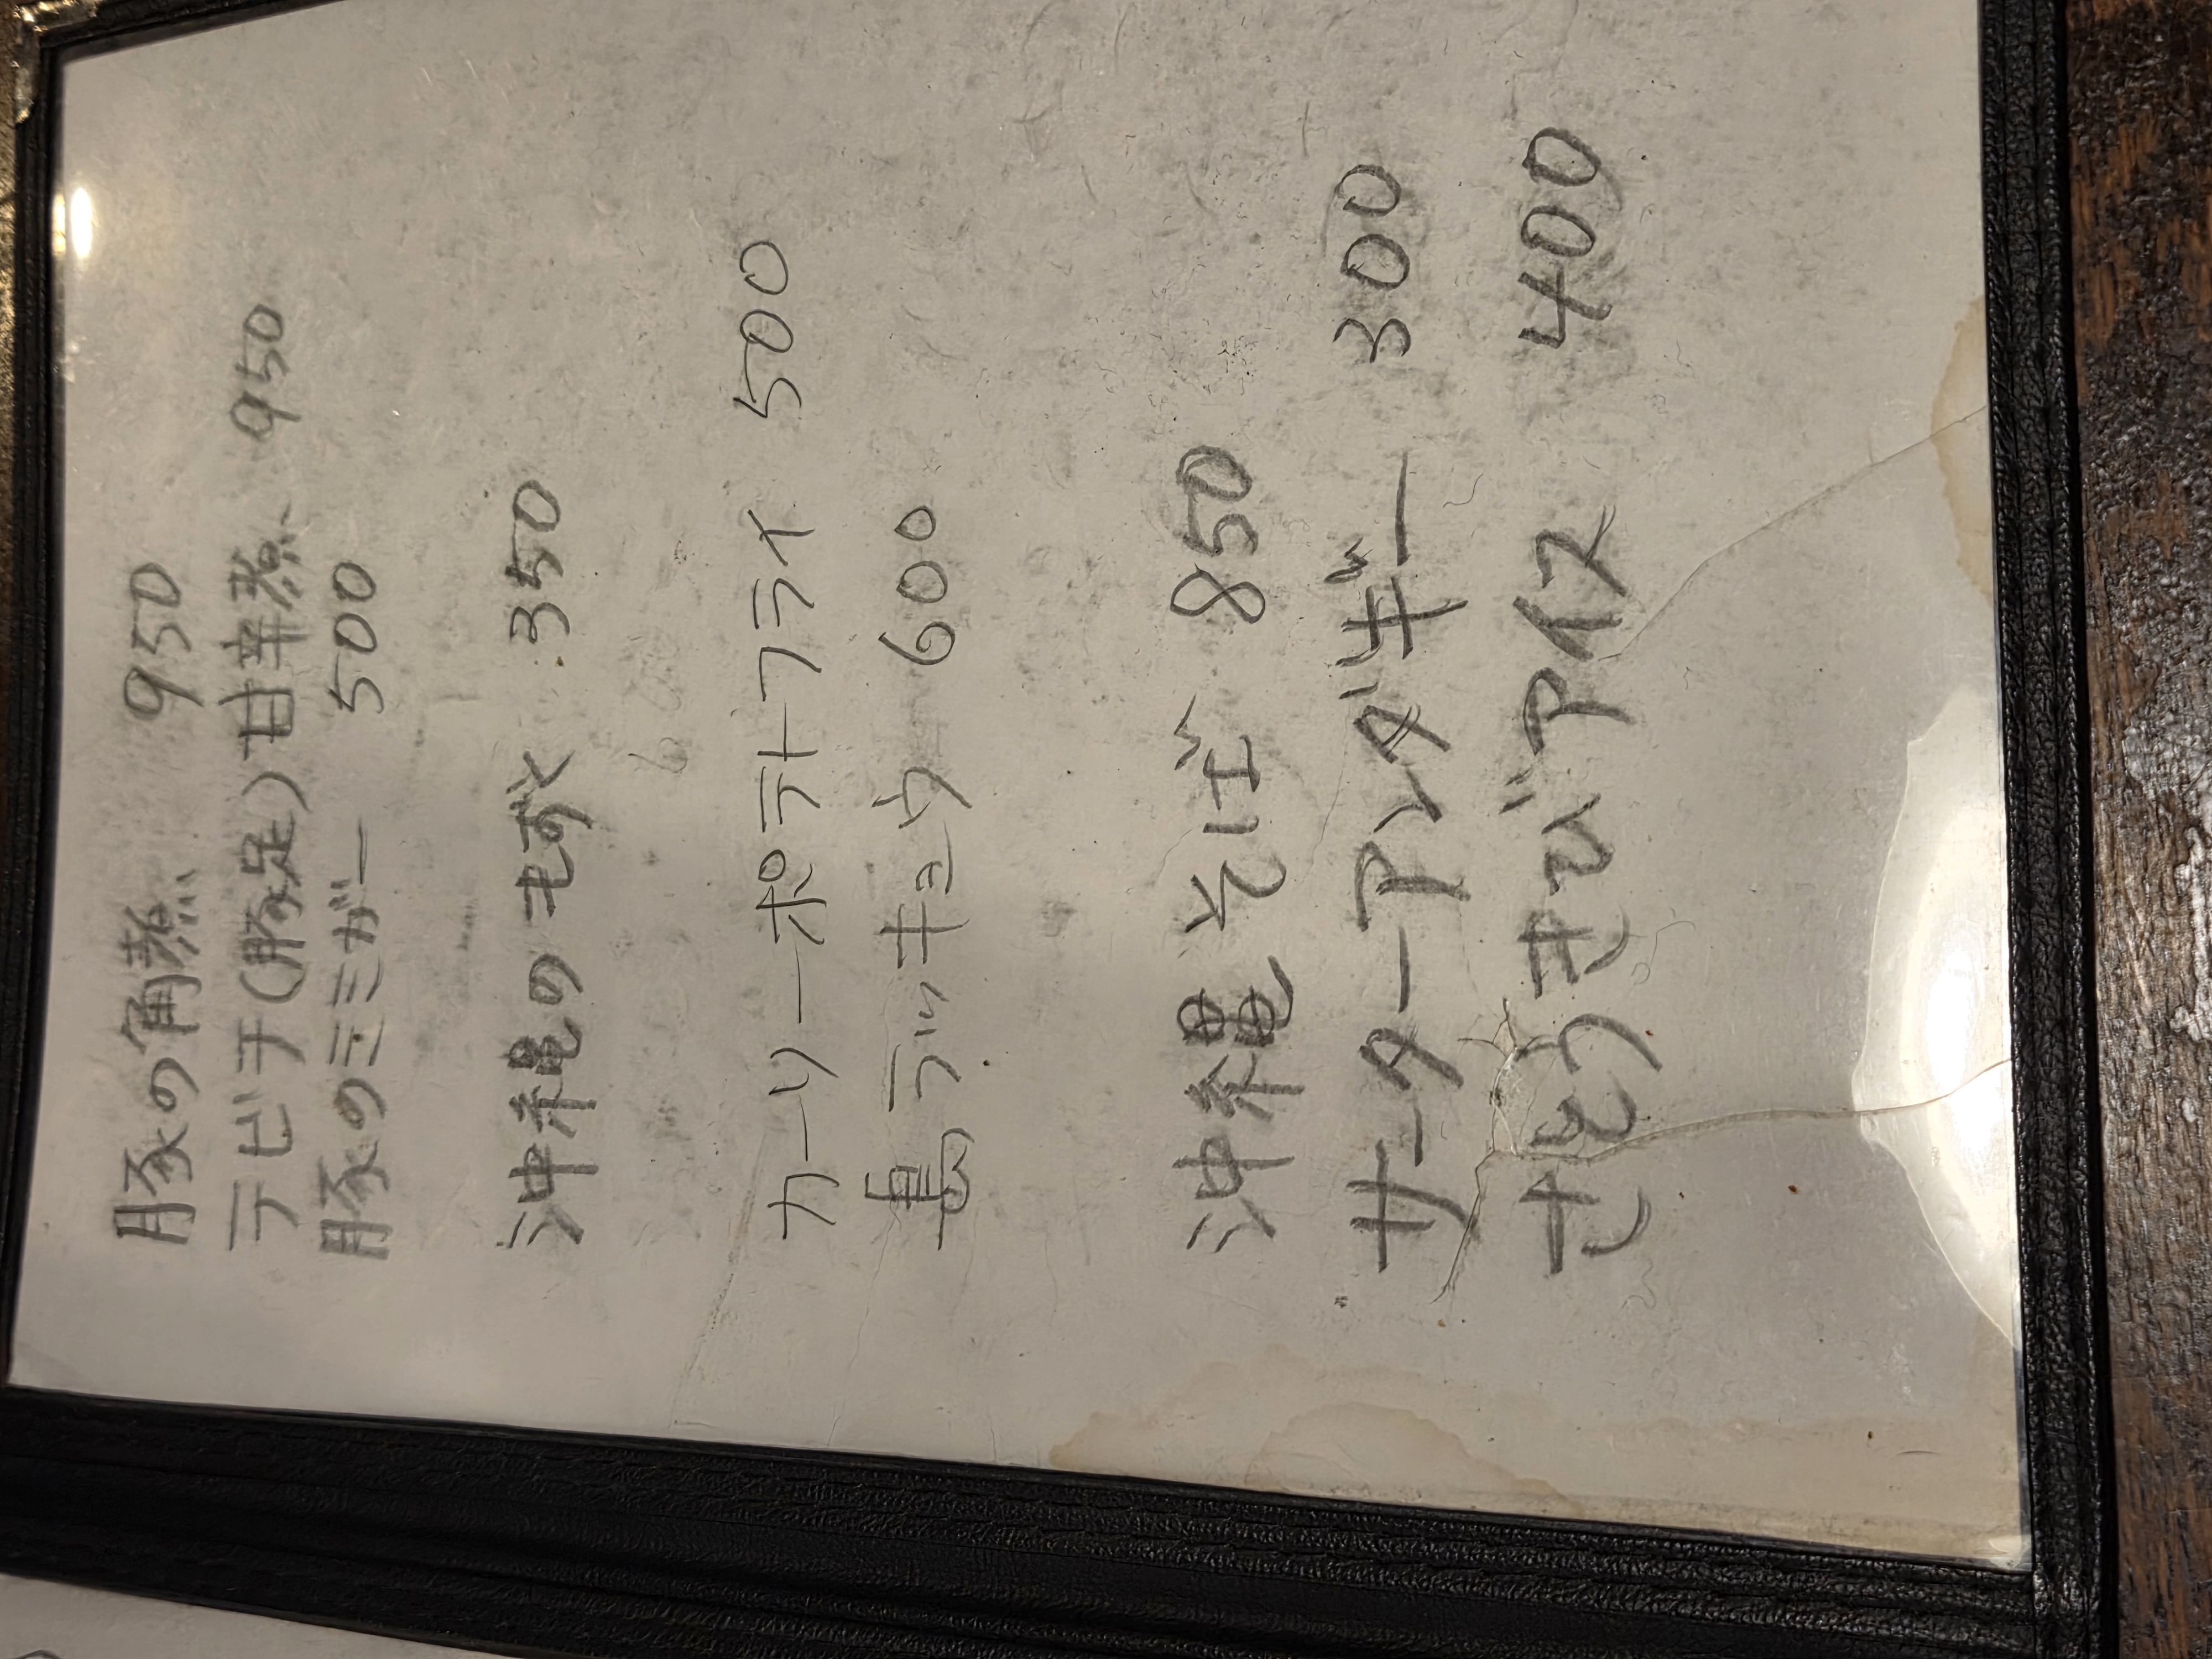 豚の角煮 950
テビチ(豚足)甘辛煮 950
豚のミミガー 500
沖縄のもずく 350
カーリーポテトフライ 500
島ラッキョウ 600
沖縄そば 850
サーターアンダギー 300
さとうきびアイス 400